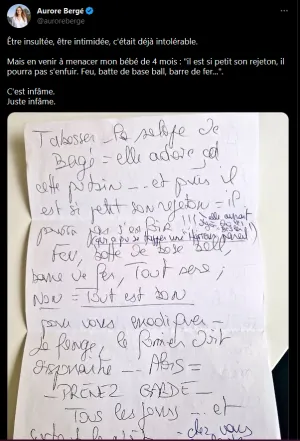 Aurore Bergé
@auroreberge
Être insultée, être intimidée, c'était déjà intolérable.
Mais en venir à menacer mon bébé de 4 mois : "il est si petit son rejeton, il
pourra pas s'enfuir. Feu, batte de base ball, barre de fer...".
C'est infâme.
Juste infâme.
Tabasser la salope de
Bergé = elle adore ça
cette putain --- et puis il
est si petit son rejeton = il
pourra pas s'enfuir !!!
Feu, batte de base ball,
barre de fer, Tout sera,
NON = Tout est bon
pour vous
Le Singe, le premier doit
disparaître --- Alors =
- PRENEZ GARDE -
Tous les jours --- et
chez vous